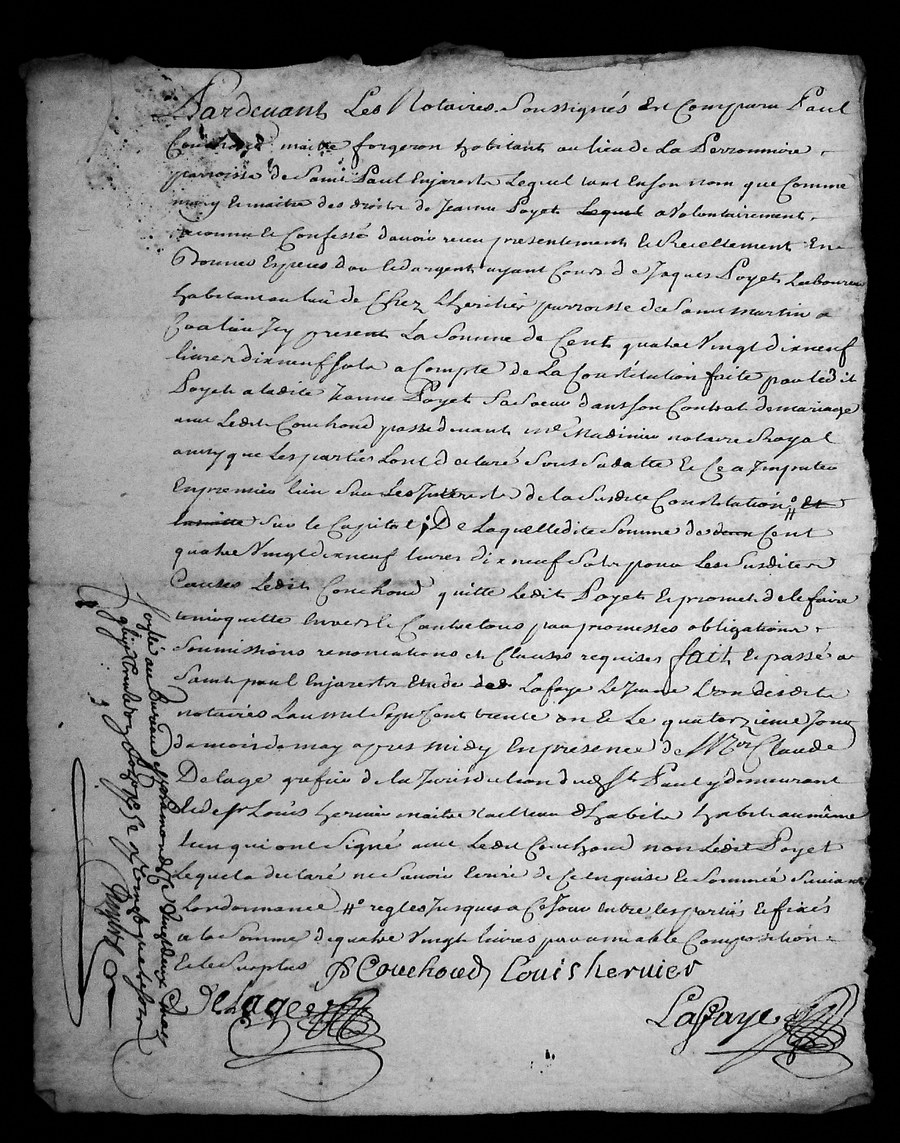 Pardevant Les Notaires Soussignés Est Comparu Paul
Couchoud maitre forgeron habitant au lieu de La Perronnière
parroisse de Saint Paul Enjarestz Lequel tant en son nom que Comme
mary Et maitre des droits de Jeanne Poyet Lequel a Volontairement
reconnu Et Confessé d'avoir receu presentement Et Reellement En
Bonnes Especes d'or Et d'argent ayant Cours de Jaques Poyet Laboureur
habitant au lieu de Chez L'heritier parroisse de Saint Martin a
Coalieu Icy present La Somme de Cent quatre Vingt dixneuf
livres dixneuf sols a Compte de La Constitution faite par ledit
Poyet a ladite Jeanne Poyet Sa Soeur dans son Contrat de mariage
avec Ledit Couchoud passé devant me Madinier notaire Royal
ainsy que Les parties L'ont declaré Sous Sa datte Et Ce a Imputer
En premier lieu Sur Les Interests de la Susdite Constitution Et
Sur le Capital De Laquelle dite Somme de Cent
quatre Vingt dixneuf livres dixneuf Sols pour Les Susdites
Causes Ledit Couchoud quitte Ledit Poyet Et promet de le faire
tenir quitte Envers Et Contre tous par promesses obligations
Soumissions renonciations Et Clauses requises fait Et passé a
Saint paul Enjarestz Etude de Lafaye Le Jeune L'un desdits
notaires L'an mil Sept Cent trente un Et Le quatorzieme Jour
du mois de may apres midy En presence de Claude
Delage grefier de la Jurisdiction dud St Paul y demeurant
Et de Sr Louis hervier maitre tailleur d'habits habit au même
lieu qui ont Signé avec Ledit Couchoud non Ledit Poyet
Lequel a declaré ne Savoir Ecrire de Ce Enquis Et Sommé Suivant
Lordonnance regles Jusques a Ce Jour entre les parties Et fixés
a la Somme de quatre Vingt livres par amiable Composition
Et le Surplus
P Couchoud Louis hervier
Delage
Lafaye
au Bureau de Le Vingt deux may